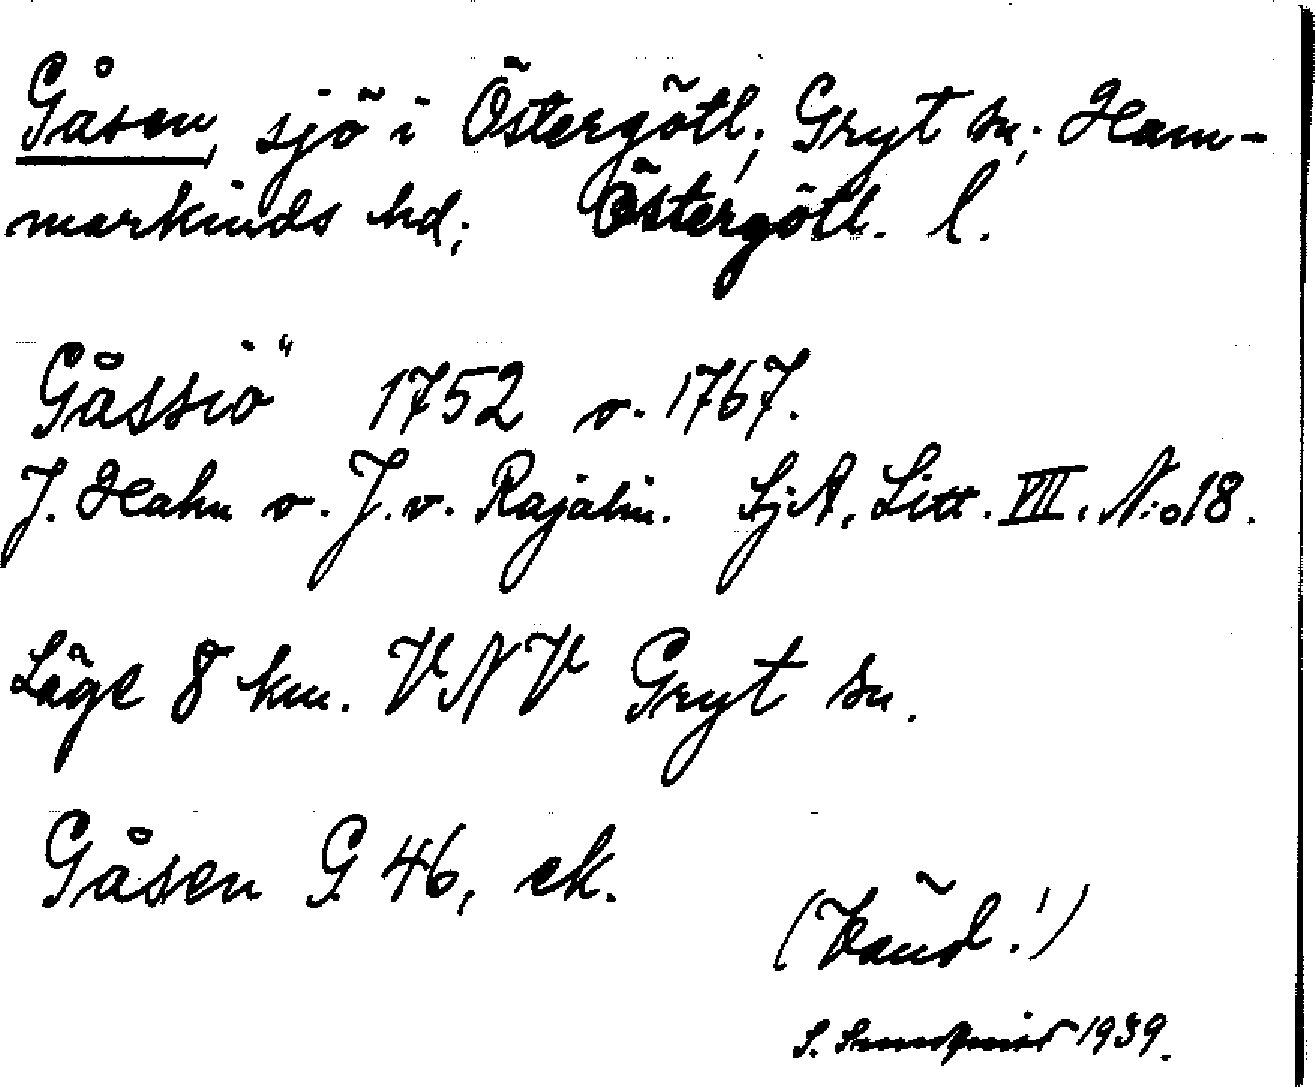 Gåsen, sjö i Östergötl; Gryt sn; Ham-
markinds hd; Östergötl. l.
Gåssiö" 1752 o. 1767.
J. Hahn o. J. v. Rajalin. SjA, Litt. VII. N:o 18.
Läge 8 km. VNV Gryt sn.
Gåsen G. 46, ek.
(Vänd!)
S. 1939.